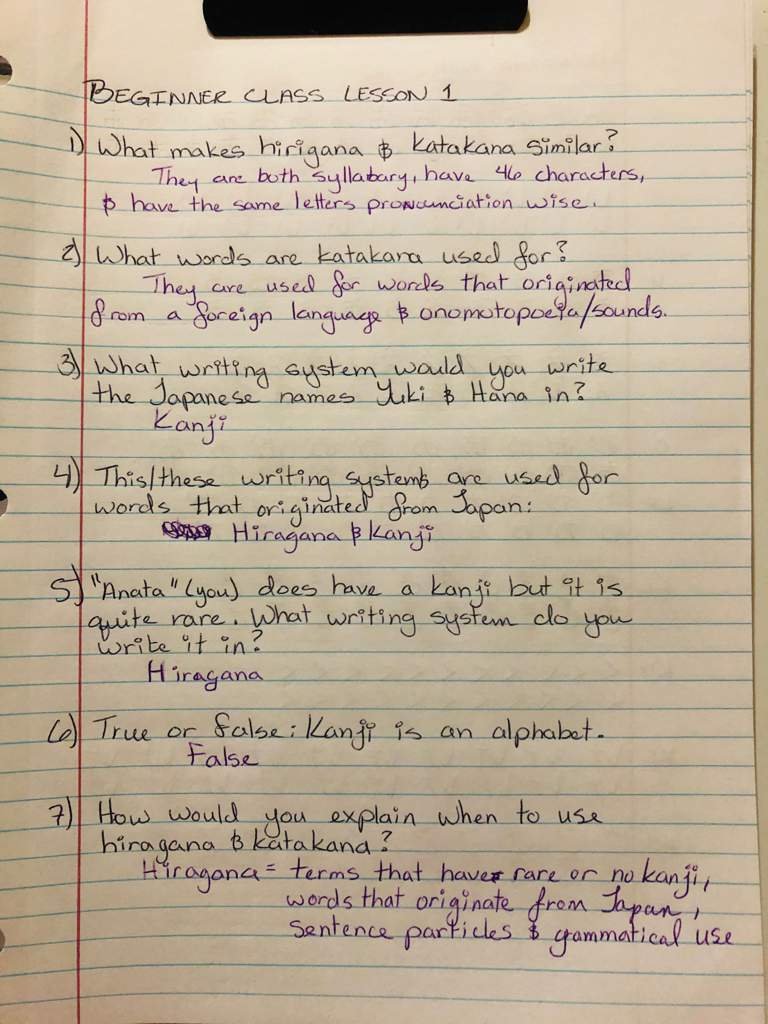 BEGINNER CLASS LESSON 1
1) What makes hirigana & katakana similar?
They are both syllabary, have 46 characters,
& have the same letters pronounciation wise.
2) What words are katakana used for?
They are used for words that originated
from a foreign language & onomotopoeia/sounds.
3) What writing system would you write
the Japanese names Yuki & Hana in?
Kanji
4) This/these writing systems are used for
words that originated from Japan:
Hiragana & Kanji
5) "Anata" (you) does have a kanji but it is
quite rare. What writing system do you
write it in?
Hiragana
6) True or false: Kanji is an alphabet.
False
7) How would you explain when to use
hiragana & katakana?
Hiragana = terms that have rare or no kanji,
words that originate from Japan,
sentence particles & grammatical use